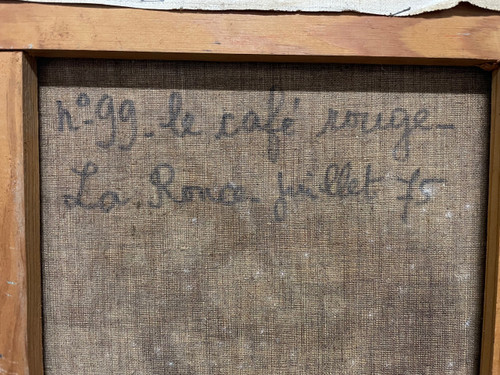 n° 99 - le café rouge -
La Ronce - juillet 75